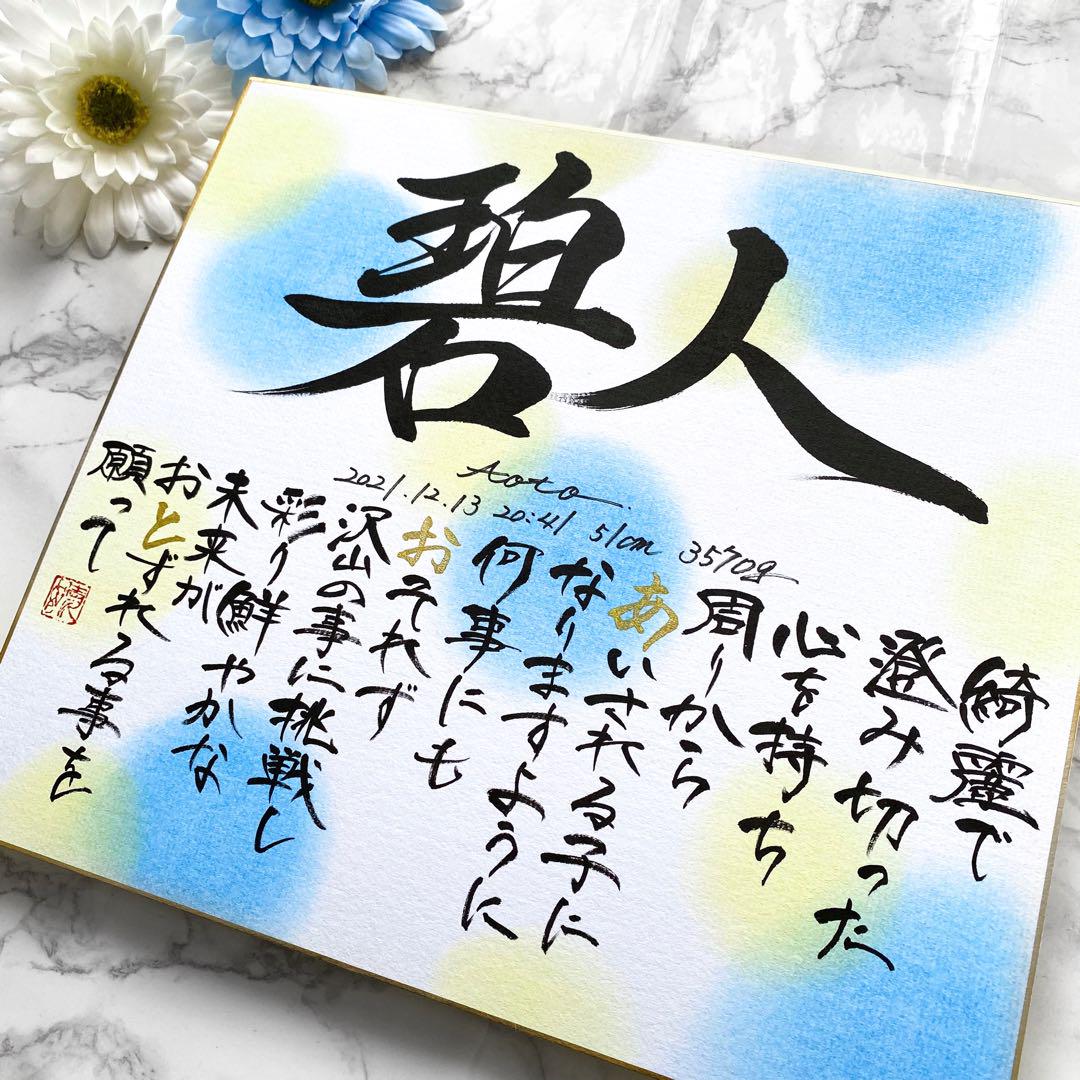 碧人
Aoto
2021.12.13 20:41 51cm 3570g
綺麗で
澄み切った
心を持ち
周りから
あいされる子に
なりますように
何事にも
おそれず
沢山の事に挑戦し
彩り鮮やかな
未来が
おとずれる事を
願って